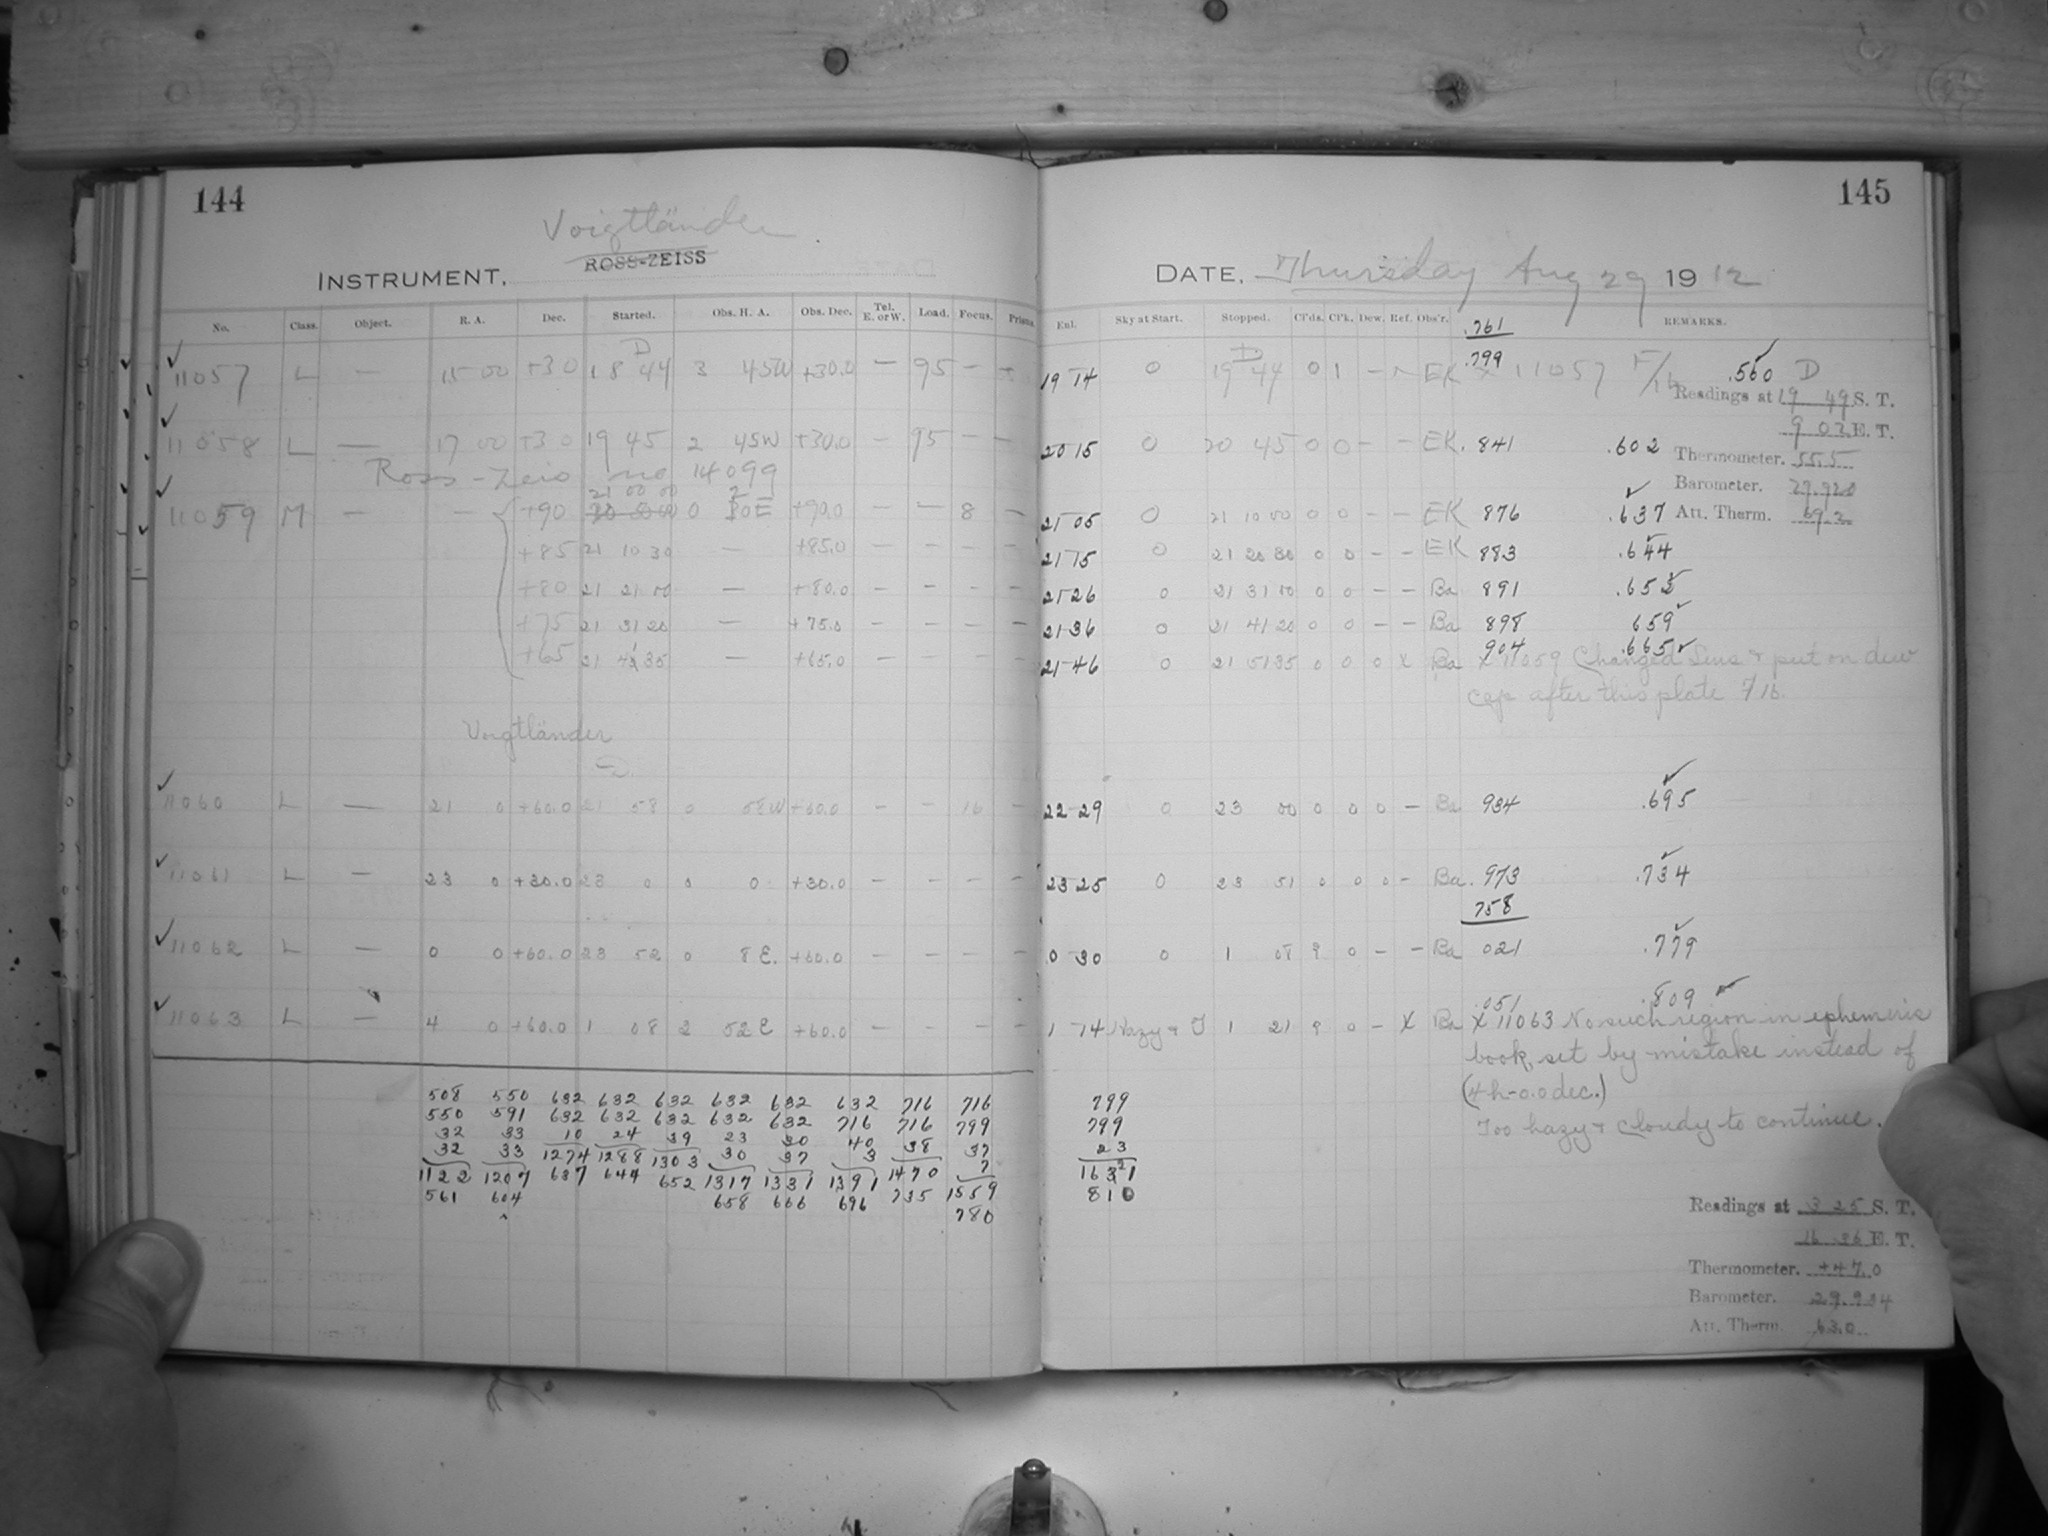 144
Voigtländer
ROSS-ZEISS
INSTRUMENT.
No. Class. Object. R. A. Dec. Started. Obs. H. A. Obs. Dec. Tel. E. or W. Load. Focus. Prism.
D
11057 L — 15 00 +30 18 44 3 45W +30.0 — 95 — —
11058 L — 17 00 +30 19 45 2 45W +30.0 — 95 — —
Ross-Zeiss no 14099
21 00 00
11059 M — — +90 0 30E +90.0 — — 8 —
+85 21 10 30 — +85.0 — — — —
+80 21 21 00 — +80.0 — — — —
+75 21 31 20 — +75.0 — — — —
+65 21 41 35 — +65.0 — — — —
Voigtländer
11060 L — 21 0 +60.0 21 58 0 58W +60.0 — — 16 —
11061 L — 23 0 +30.0 23 0 0 0 +30.0 — — — —
11062 L — 0 0 +60.0 23 52 0 8E. +60.0 — — — —
11063 L — 4 0 +60.0 1 08 2 52E +60.0 — — — —
508 550 632 632 632 632 632 632 716 716
550 591 632 632 632 632 632 716 716 799
32 33 10 24 39 23 30 40 38 37
32 33 1274 1288 1303 30 37 3 1470 7
1122 1207 637 644 652 1317 1331 1391 735 1559
561 604 658 666 696 780
145
DATE, Thursday Aug 29 1912
Enl. Sky at Start. Stopped. Cl'ds. Cl'k. Dew. Ref. Obs'r. REMARKS.
.761
D
19 14 0 19 44 0 1 — — EK .799 X 11057 F/16 .560 D
Readings at 19 49 S. T.
9 02 E. T.
20 15 0 20 45 0 0 — — EK. 841 .602
Thermometer. 55.5
Barometer. 29.920
21 05 0 21 10 00 0 0 — — EK 876 .637
Att. Therm. 69.2
21 15 0 21 20 30 0 0 — — EK 883 .644
21 26 0 21 31 00 0 0 — — Ba 891 .652
21 36 0 21 41 20 0 0 — — Ba 898 659
904 .665
21 46 0 21 51 35 0 0 0 X Ba X 11059 Changed lens & put on dew
cap after this plate F/16.
22 29 0 23 00 0 0 0 — Ba 934 .695
23 25 0 23 51 0 0 0 — Ba. 973 .734
758
0 30 0 1 08 9 0 — — Ba 021 .779
.051 .809
1 14 Hazy & 1 21 9 0 — X Ba X 11063 No such region in ephemeris
book, set by mistake instead of
(4h-0.0 dec.)
Too hazy & cloudy to continue.
799
799
23
1621
810
Readings at 3 25 S. T.
16 36 E. T.
Thermometer. +47.0
Barometer. 29.934
Att. Therm. 63.0